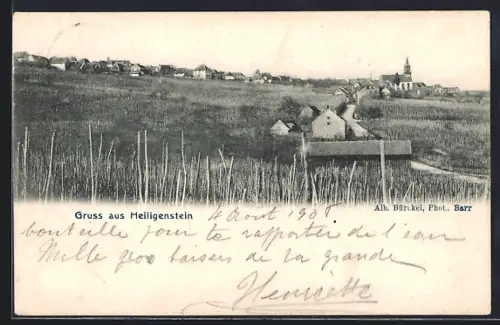 Gruss aus Heiligenstein
Alb. Bürckel, Phot., Barr
4 Août 190
bouteille pour te rapporter de l'eau
Mille baisers de ta grande
Henriette